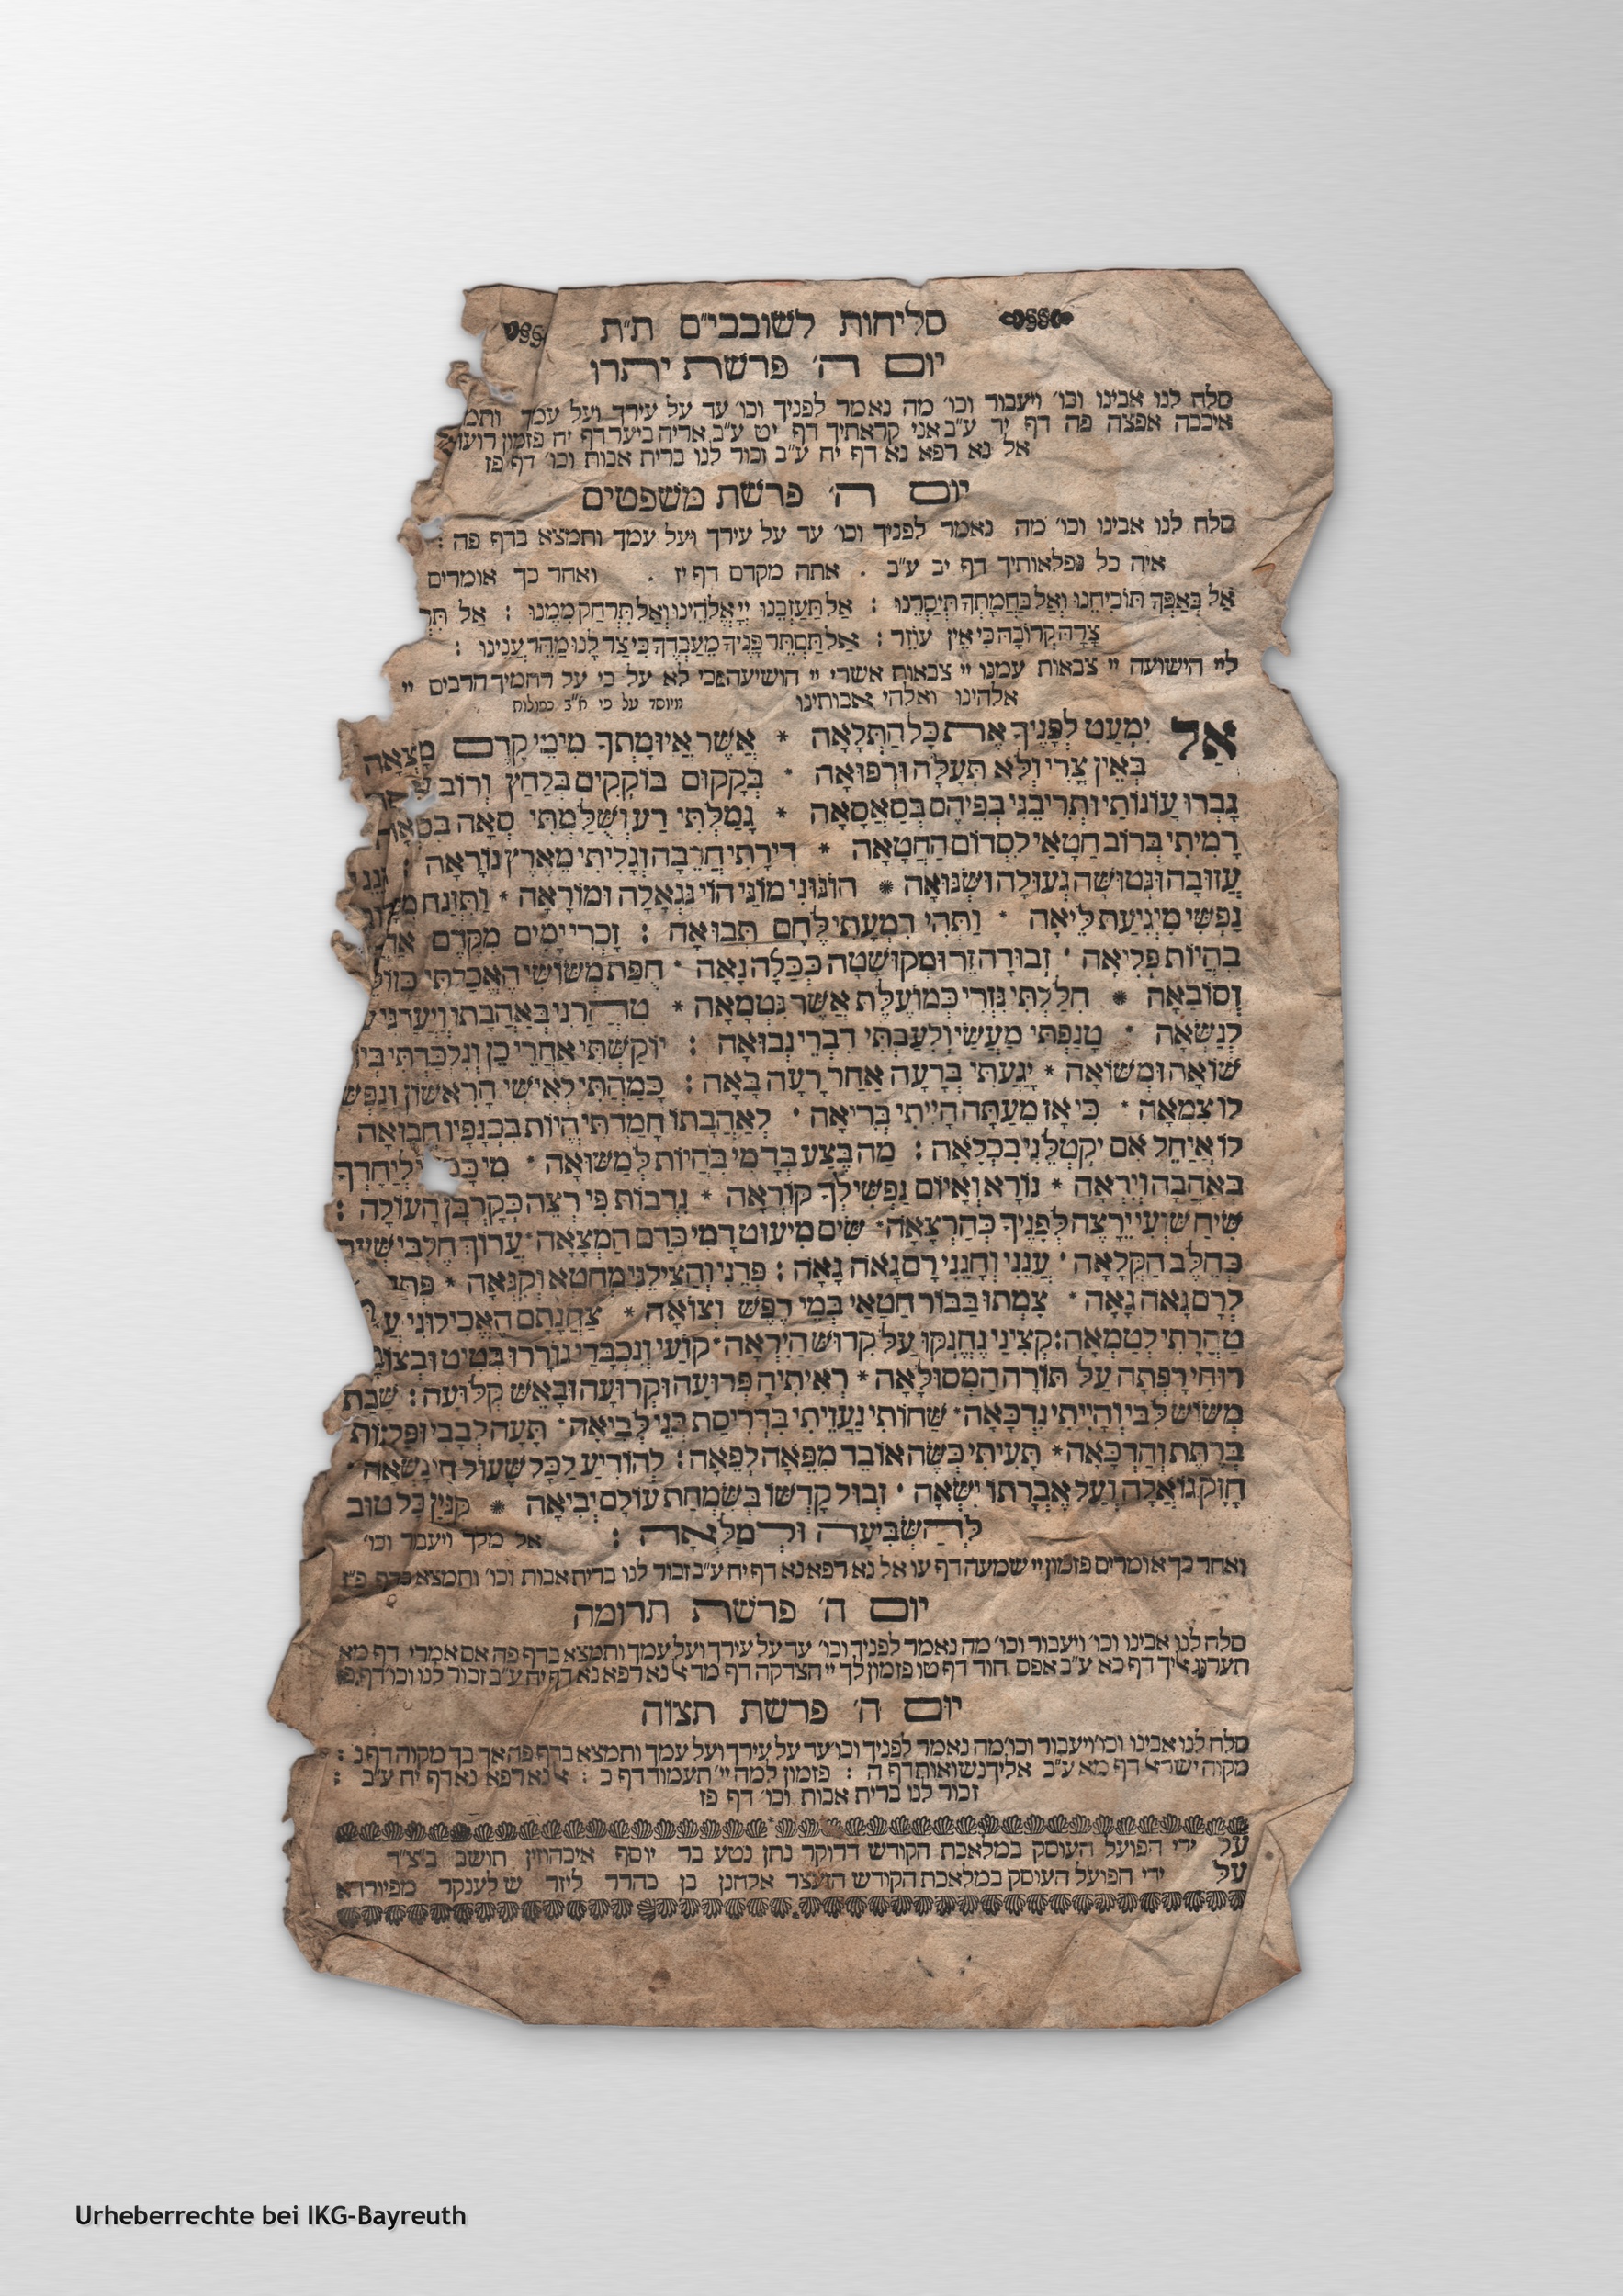 סליחות לשובבי״ם ת״ת
יום ה׳ פרשת יתרו
סלח לנו אבינו וכו׳ ויעבור וכו׳ מה נאמר לפניך וכו׳ עד על עירך ועל עמך
איככה אפצה פה דף ע״ב אני קראתיך דף יט ע״ב אריה ביער דף יח פזמון
אל נא רפא נא דף יח ע״ב זכור לנו ברית אבות וכו׳ דף פז
יום ה׳ פרשת משפטים
סלח לנו אבינו וכו׳ מה נאמר לפניך וכו׳ עד על עירך ועל עמך ותמצא בדף פה :
איה כל נפלאותיך דף יב ע״ב . אתה מקדם דף יז . ואחר כך אומרים
אַל בְּאַפְּךָ תוֹכִיחֵנוּ וְאַל בַּחֲמָתְךָ תְּיַסְּרֵנוּ : אַל תַּעַזְבֵנוּ יְיָ אֱלֹהֵינוּ וְאַל תִּרְחַק מִמֶּנּוּ : אַל
צָרָה קְרוֹבָה כִּי אֵין עוֹזֵר : אַל תַּסְתֵּר פָּנֶיךָ מֵעַבְדְּךָ כִּי צַר לָנוּ מַהֵר עֲנֵינוּ :
לי״י הישועה י״י צבאות עמנו י״י צבאות אשרי י״י הושיעה כי לא על כי על רחמיך הרבים י״י
אלהינו ואלהי אבותינו מיוסד על פי א״ב כפולות
אַל יִמְעַט לְפָנֶיךָ אֶת כָּל הַתְּלָאָה * אֲשֶׁר אֲיוּמָתְךָ מִימֵי קֶדֶם מְצָאָה
בְּאֵין צֳרִי וְלֹא תְּעָלָה וּרְפוּאָה * בְּקָקוּם בּוֹקְקִים בְּלַחַץ וְרוֹב
גָבְרוּ עֲוֹנוֹתַי וּתְרִיבֵנִי בְּפִיהֶם בְּסַאסְּאָה * גָמַלְתִּי רַע וְשֻׁלַּמְתִּי סְאָה בִּסְאָה
דָמִיתִי בְּרוֹב חֲטָאַי לִסְדוֹם הַחַטָאָה * דִירָתִי חֲרֵבָה וְגָלִיתִי מֵאֶרֶץ נוֹרָאָה :
עֲזוּבָה וּנְטוּשָׁה גְעוּלָה וּשְׂנוּאָה * הוֹנוּנִי מוֹנַי הוֹי נִגְאָלָה וּמוֹרָאָה * וַתִּזְנַח
נַפְשִׁי מִיגִיעַת לֵיאָה * וַתְּהִי דִמְעָתִי לֶחֶם תְּבוּאָה : זָכְרִי יָמִים מִקֶּדֶם
בִּהְיוֹת פְּלִיאָה * זְבוּדָה זֵר וּמְקוּשָׁטָה כְּכַלָּה נָאָה * חֻפַּת מְשׂוֹשִׂי הֶאֱכַלְתִּי
וְסוֹבְאָה * חִלַּלְתִּי נִזְרִי כְּמוֹעֶלֶת אֲשֶׁר נִטְמָאָה * טִהֲרַנִי בְּאַהֲבָתוֹ
לְנַשְּׂאָה * טָנַפְתִּי מַעֲשַׂי וְלִעַבְתִּי דִבְרֵי נְבוּאָה : יוֹקַשְׁתִּי אַחֲרֵי כֵן וְנִלְכַּדְתִּי
שׁוֹאָה וּמְשׁוֹאָה * יָגַעְתִּי בְּרָעָה אַחַר רָעָה בָּאָה : כָּמַהְתִּי לְאִישִׁי הָרִאשׁוֹן
לוֹ צְמֵאָה * כִּי אָז מֵעַתָּה הָיִיתִי בְּרִיאָה * לְאַהֲבָתוֹ חָמַדְתִּי הֱיוֹת בִּכְנָפָיו חֲבוּאָה
לוֹ אֲיַחֵל אִם יִקְטְלֵנִי בִּכְלָאָה : מַה בֶּצַע בְּדָמִי בִּהְיוֹת לִמְשׁוּאָה *
בְּאַהֲבָה וְיִרְאָה * נוֹרָא וְאָיוֹם נַפְשִׁי לְךָ קוֹרְאָה * נִדְבוֹת פִּי רְצֵה כְּקָרְבַּן הָעוֹלָה :
שִׂיחַ שַׁוְעִי יֵרָצֶה לְפָנֶיךָ כְּהַרְצָאָה * שִׂים מִיעוּט דָמִי כְּדַם הַמְצָאָה *
כְּחֵלֶב הַקְּלָאָה * עֲנֵנִי וְחָנֵּנִי רָם גָּאֹה גָאָה : פְּדֵנִי וְהַצִּילֵנִי מֵחֵטְא וְקִנְאָה *
לְרָם גָּאֹה גָאָה * צָמְתוּ בַּבּוֹר חַטָאַי בְּמֵי רֶפֶשׁ וְצוֹאָה * צַחֲנָתָם הֶאֱכִילוּנִי
טָהֳרָתִי לְטַמְּאָה : קְצִינַי נֶחֶנְקוּ עַל קִדּוּשׁ הַיִּרְאָה * קוֹעִי וְנִכְבָּדַי גוֹרְרוּ בְּטִיט
רוּחִי רָפְתָה עַל תּוֹרָה הַמְסוּלָּאָה * רְאִיתִיהָ פְּרוּעָה וּקְרוּעָה וּבָאֵשׁ קְלוּעָה : שָׁבַת
מְשׂוֹשׂ לִבִּי וְהָיִיתִי נִדְכָּאָה * שַׁחוֹתִי נַעֲוֵיתִי בִּדְרִיסַת בְּנֵי לְבִיאָה * תָּעָה לְבָבִי
בִּרְתֵת וְהַדְכָּאָה * תָּעִיתִי כְּשֶׂה אוֹבֵד מִפֵּאָה לְפֵאָה : לְהוֹדִיעַ לְכָל
חָזָק גוֹאֲלָהּ וְעַל אֶבְרָתוֹ יִשָּׂאָהּ * זְבוּל קָדְשׁוֹ בְּשִׂמְחַת עוֹלָם יְבִיאָהּ * קִנְיַן כָּל טוּב
לְהַשְׂבִּיעָהּ וּלְמַלְּאָהּ : אל מלך ויעבור וכו׳
ואחר כך אומרים פזמון י״י שמעה דף עו אל נא רפא נא דף יח ע״ב זכור לנו ברית אבות וכו׳ ותמצא בדף פ״ז
יום ה׳ פרשת תרומה
סלח לנו אבינו וכו׳ ויעבור וכו׳ מה נאמר לפניך וכו׳ עד על עירך ועל עמך ותמצא בדף פה אם אמרי דף מא
תערוג אליך דף כא ע״ב אפס חוד דף טו פזמון לך י״י הצדקה דף מד אל נא רפא נא דף יח ע״ב זכור לנו וכו׳ דף פז
יום ה׳ פרשת תצוה
סלח לנו אבינו וכו׳ ויעבור וכו׳ מה נאמר לפניך וכו׳ עד על עירך ועל עמך ותמצא בדף פה אך בך מקוה דף נ :
מקוה ישראל דף מא ע״ב אליך נשואות דף ה : פזמון למה י״י תעמוד דף כ : אל נא רפא נא דף יח ע״ב :
זכור לנו ברית אבות וכו׳ דף פז
על ידי הפועל העוסק במלאכת הקודש הדרוקר נתן נטע בר יוסף תושב
על ידי הפועל העוסק במלאכת הקודש הזעצר אלחנן בן כהדר ליזר מפיורדא
Urheberrechte bei IKG-Bayreuth